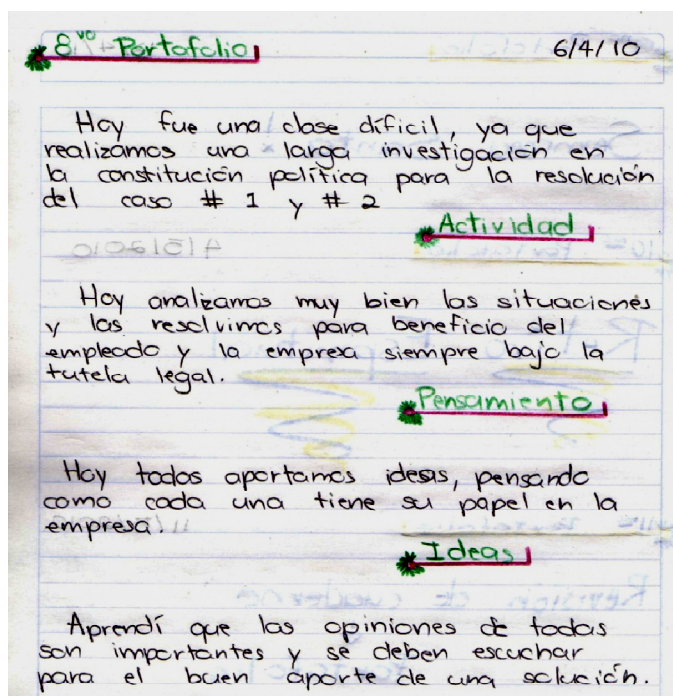 8vo Portofolio
6/4/10
Hoy fue una clase díficil, ya que
realizamos una larga investigación en
la constitución política para la resolución
del caso # 1 y # 2
Actividad
Hoy analizamos muy bien las situaciones
y las resolvimos para beneficio del
empleado y la empresa siempre bajo la
tutela legal.
Pensamiento
Hoy todas aportamos ideas, pensando
como cada una tiene su papel en la
empresa.
Ideas
Aprendí que las opiniones de todas
son importantes y se deben escuchar
para el buen aporte de una solución.